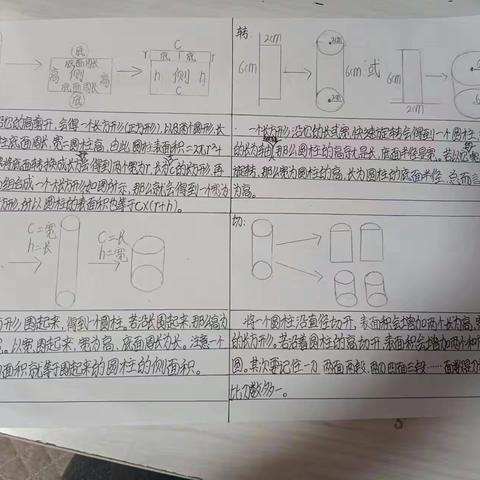 底
底面周长
高 侧 高
底面周长
底
C
r 底 底 r
h 侧 h
C
沿它的高剪开,会得一个长方形(正方形),以及两个圆形,长
柱底面周长,宽=圆柱高
底面转换成长方
组合成一个大长方形如图所示,那么就会得到一个宽为
方形,所以圆柱的表面积也等于C×(r+h)。
转:
2cm
6cm
2cm
6cm
2cm
或
6cm
2cm
一个长方形,沿它的长或宽,快速旋转会得到一个圆柱
的长为轴,那么圆柱的高是长,底面半径是宽,若以
旋转,那么宽为圆柱的高,长为圆柱的底面半径,总而言
为高。
C=宽
h=长
C=长
h=宽
方形围起来,得到一个圆柱,若沿长围起来,那么高为
以宽围起来,宽为高,底面周长为长。注意一个
面积就等于围起来的圆柱的侧面积。
切:
将一个圆柱沿直径切开,表面积会增加两个长为高,宽
的长方形,若沿着圆柱的高切开,表面积会增加两个和
圆。其次要记住一刀两面两段,两刀四面三段……面数
比刀数多一。